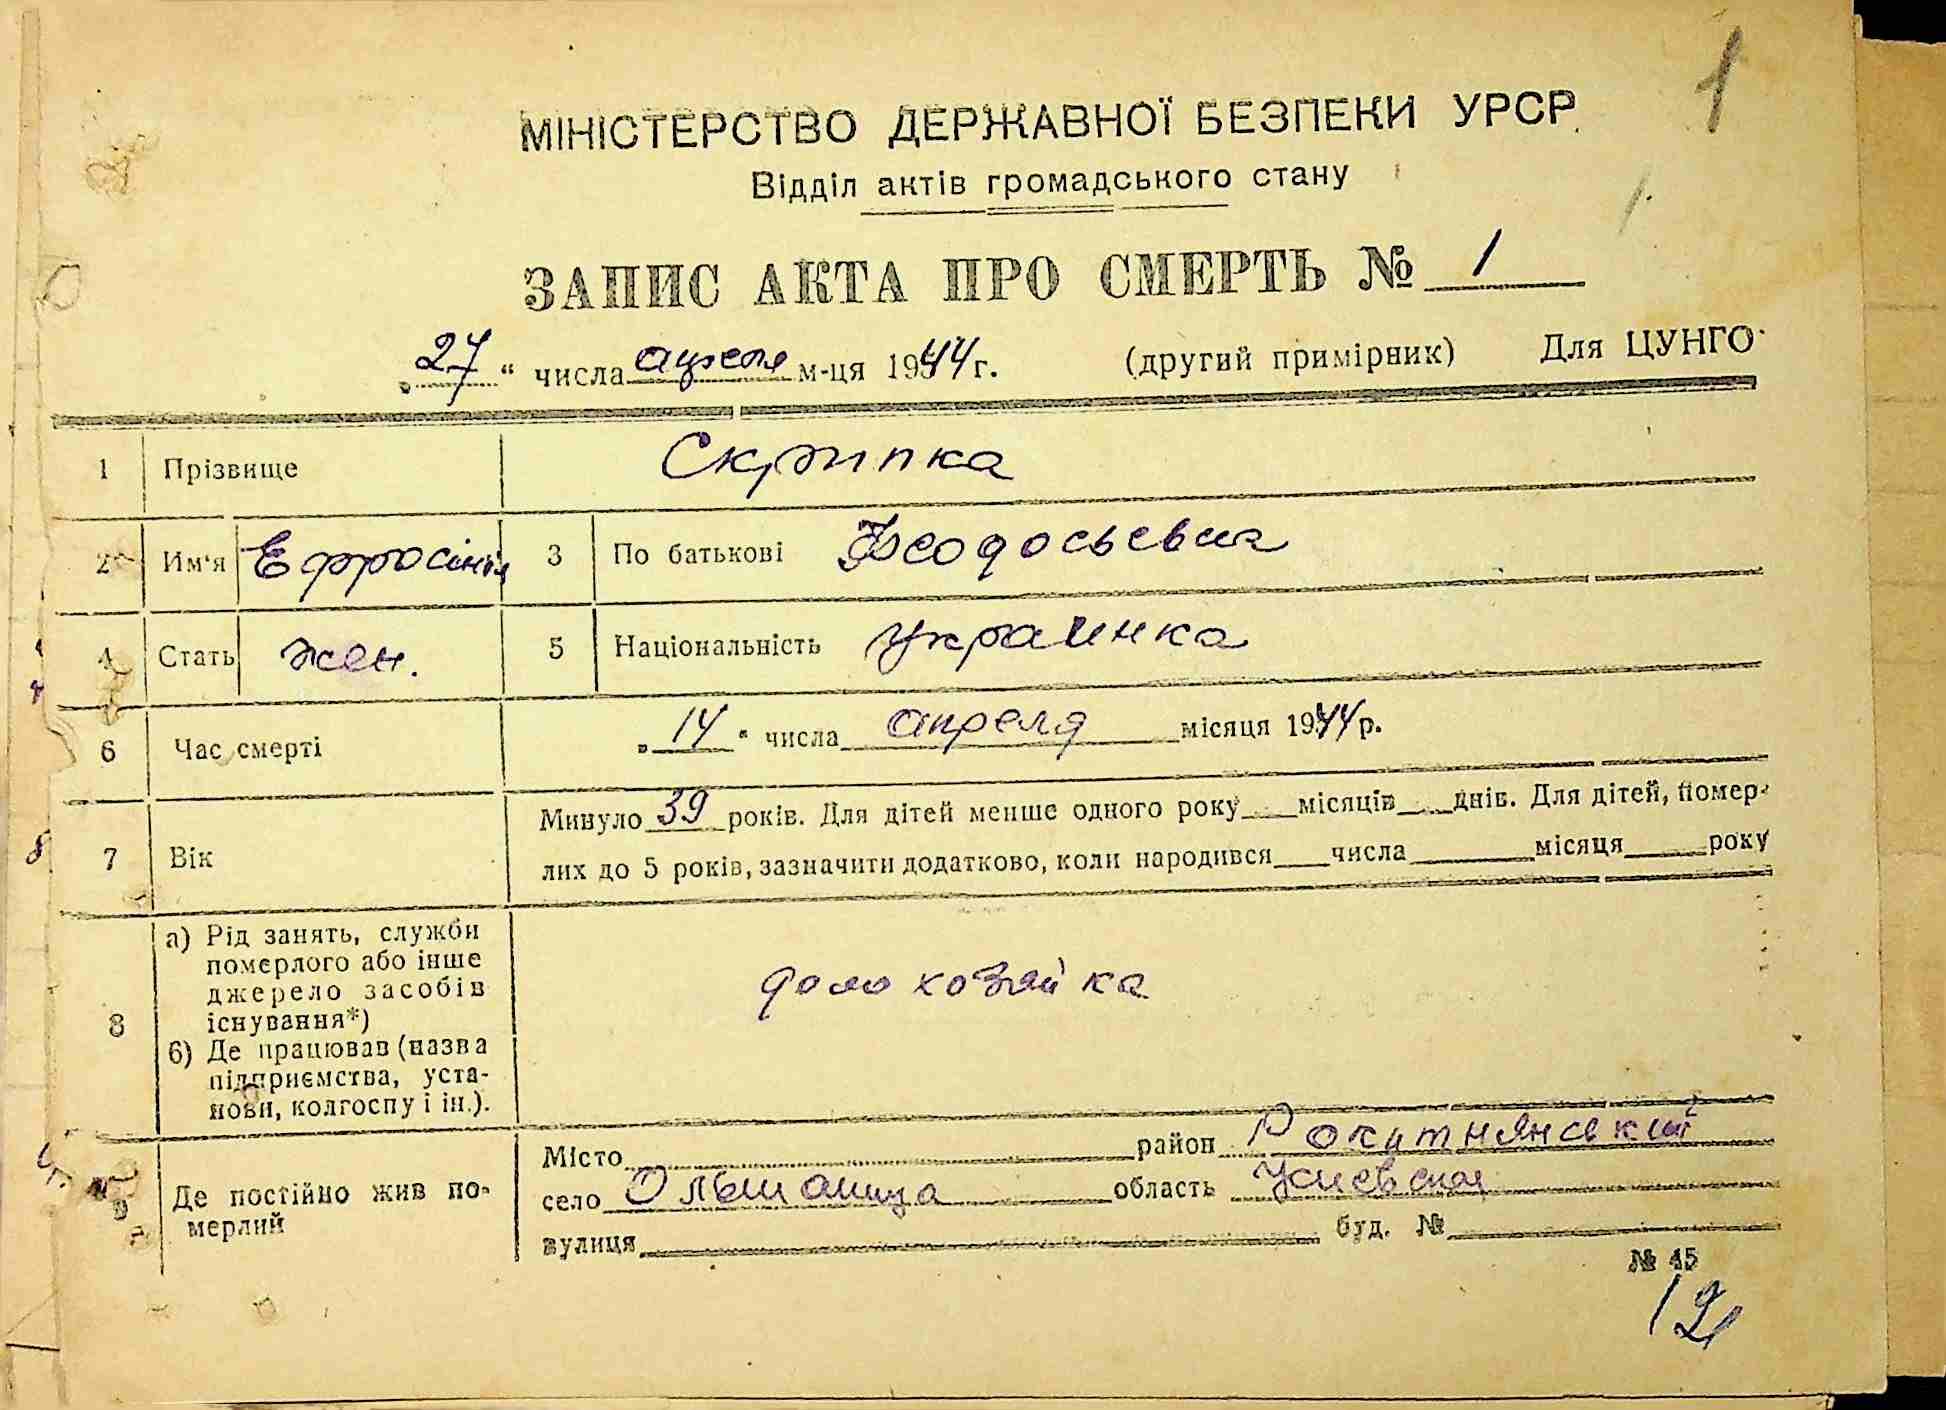 1
МІНІСТЕРСТВО ДЕРЖАВНОЇ БЕЗПЕКИ УРСР
Відділ актів громадського стану
1.
ЗАПИС АКТА ПРО СМЕРТЬ № 1
„27“ числа апреля м-ця 1944 г. (другий примірник) Для ЦУНГО
1 Прізвище Скрипка
2 Им'я Ефросінія 3 По батькові Феодосьевна
4 Стать жен. 5 Національність украинка
6 Час смерті „14“ числа апреля місяця 1944 р.
7 Вік Минуло 39 років. Для дітей менше одного року місяців днів. Для дітей, помер-
лих до 5 років, зазначити додатково, коли народився числа місяця року
8 а) Рід занять, служби
померлого або інше
джерело засобів
існування*)
б) Де працював (назва
підприємства, уста-
нови, колгоспу і ін.).
домохозяйка
9 Де постійно жив по-
мерлий
Місто район Рокитнянський
село Ольшаница область Киевская
вулиця буд. №
№ 45